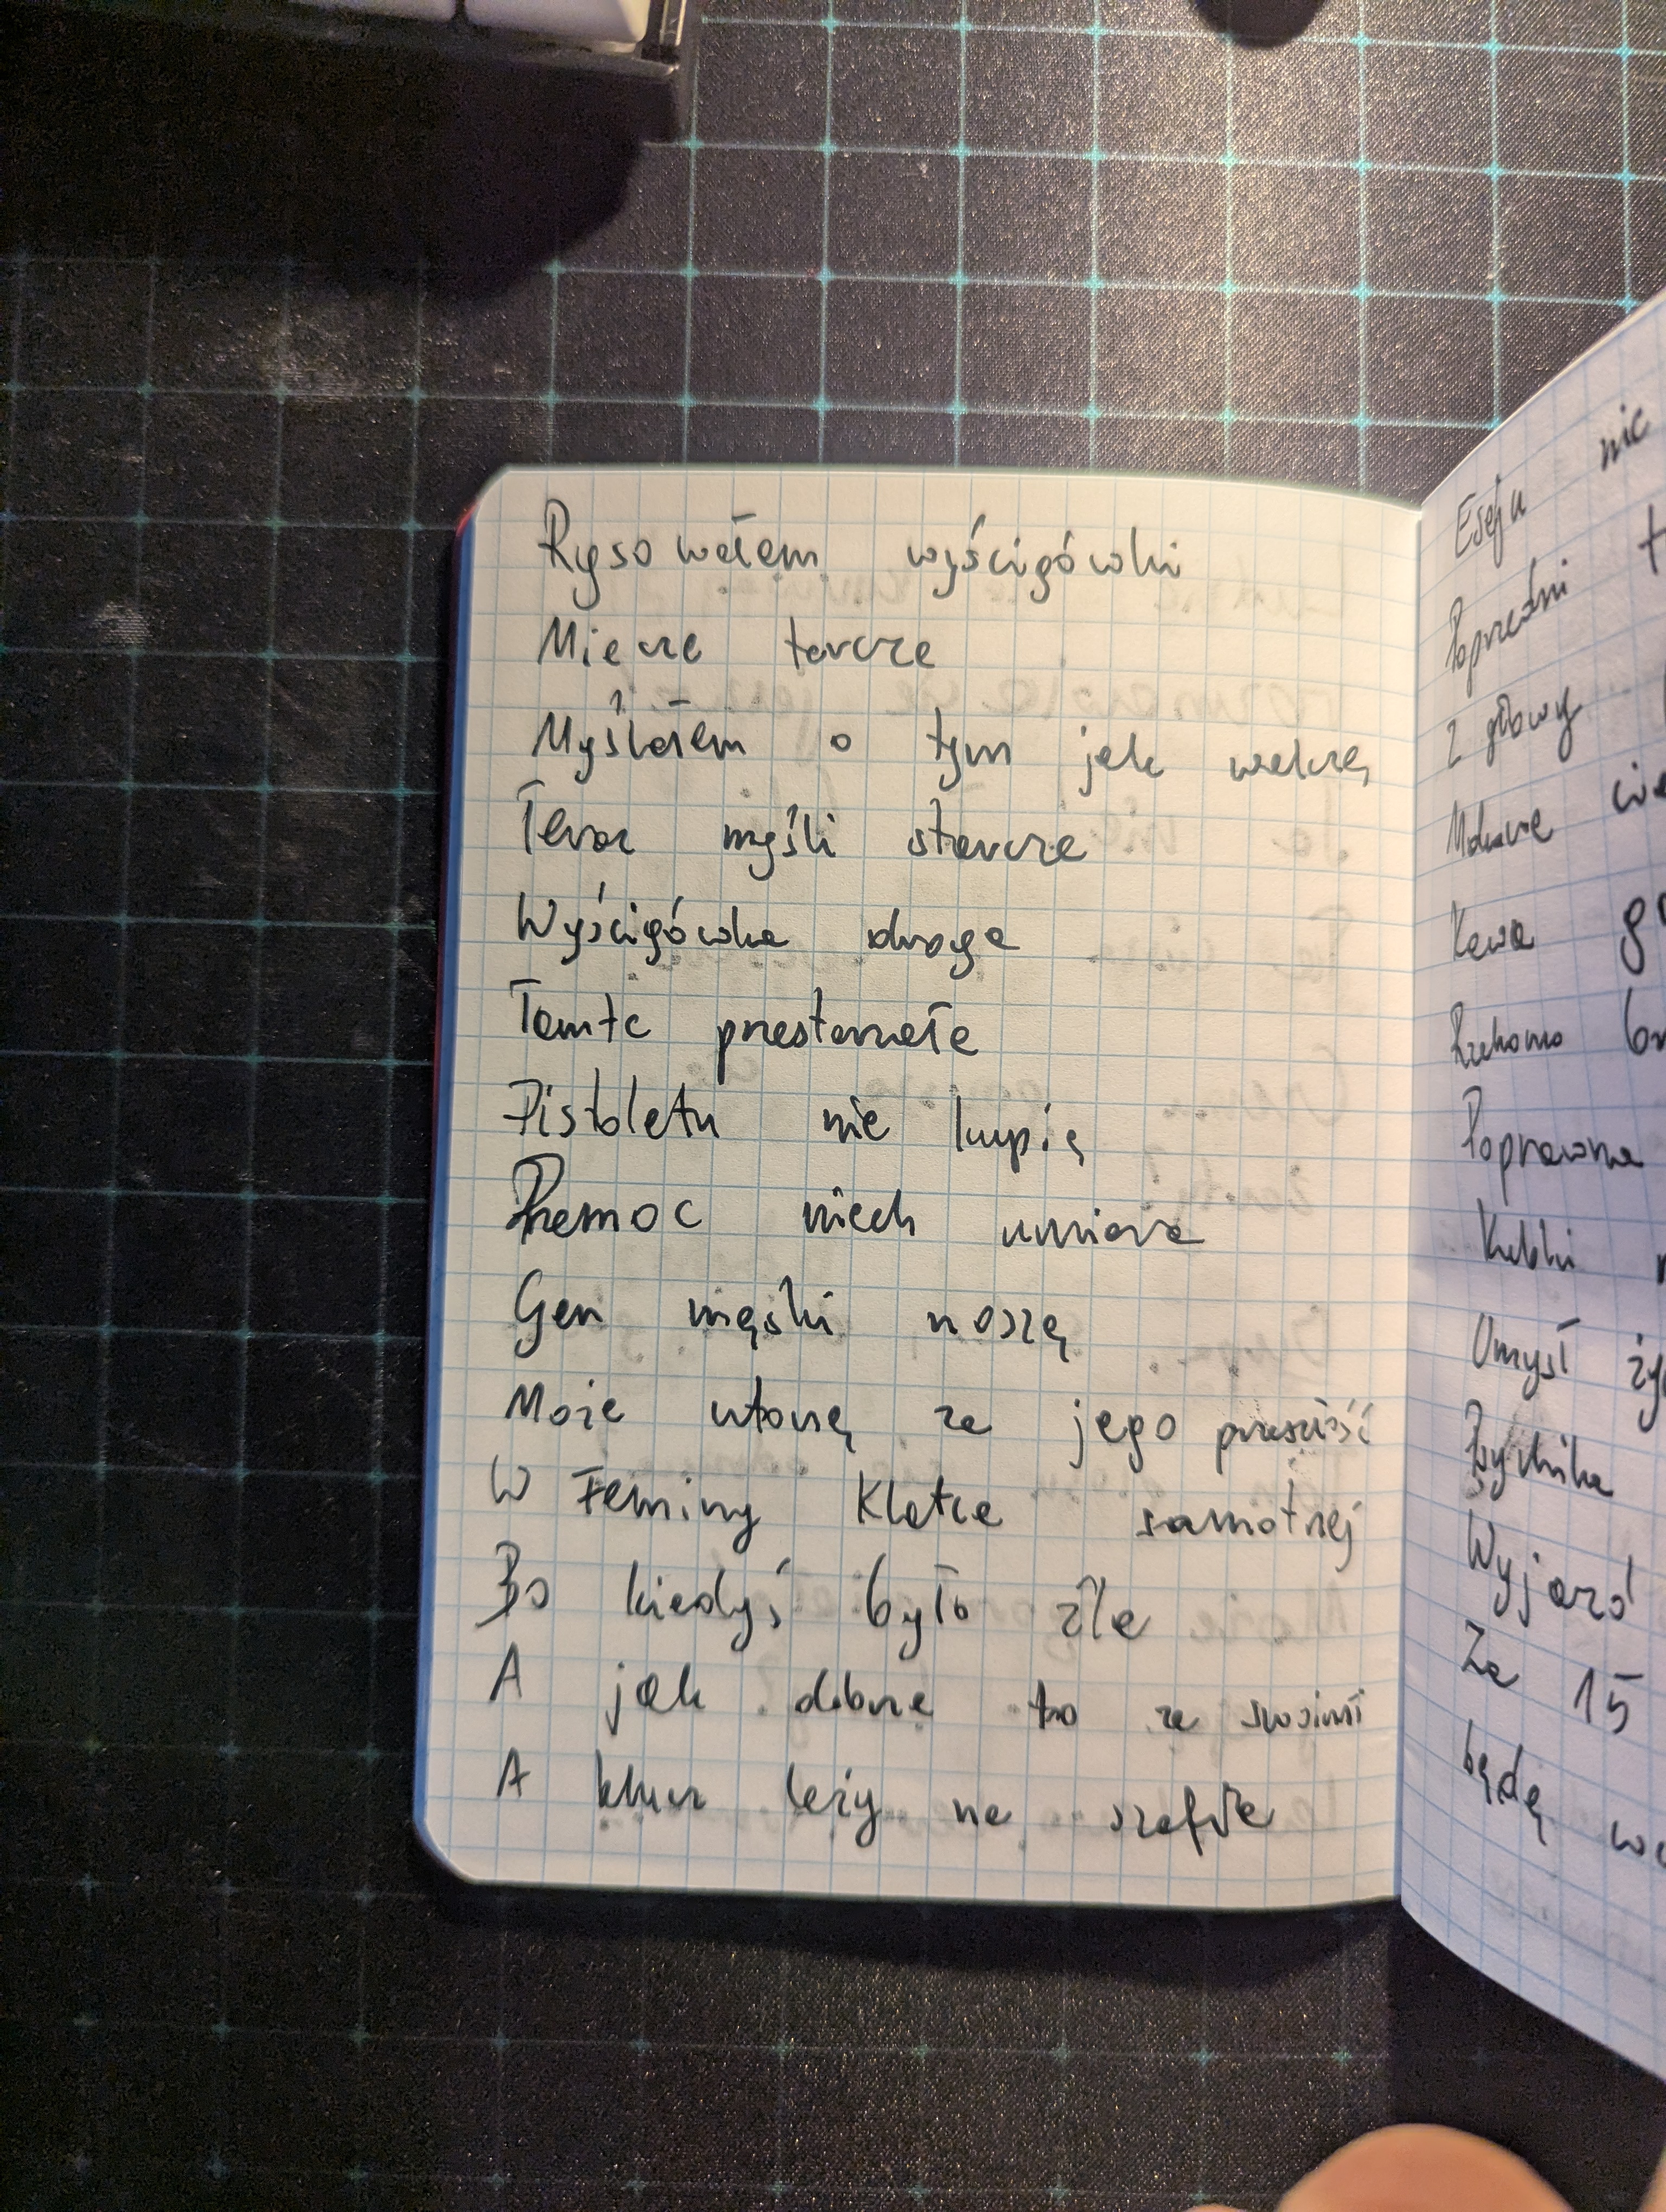 Rysowałem wyścigówki
Miecze tarcze
Myślałem o tym jak walczę
Teraz myśli starcze
Wyścigówka droga
Tamte przestarzałe
Pistoletu nie kupię
Przemoc niech umiera
Gen męski noszę
Może utonę za jego przeszłość
W Feminy Klatce samotnej
Bo kiedyś było źle
A jak dobrze to ze swoimi
A klucz leży na szafie
Eseju nic
Poprzedni
Z głowy
Mokare
Kawa
Rzekomo
Poprawna
Kubki
Umysł
Psychika
Wyjazd
Za 15
będę